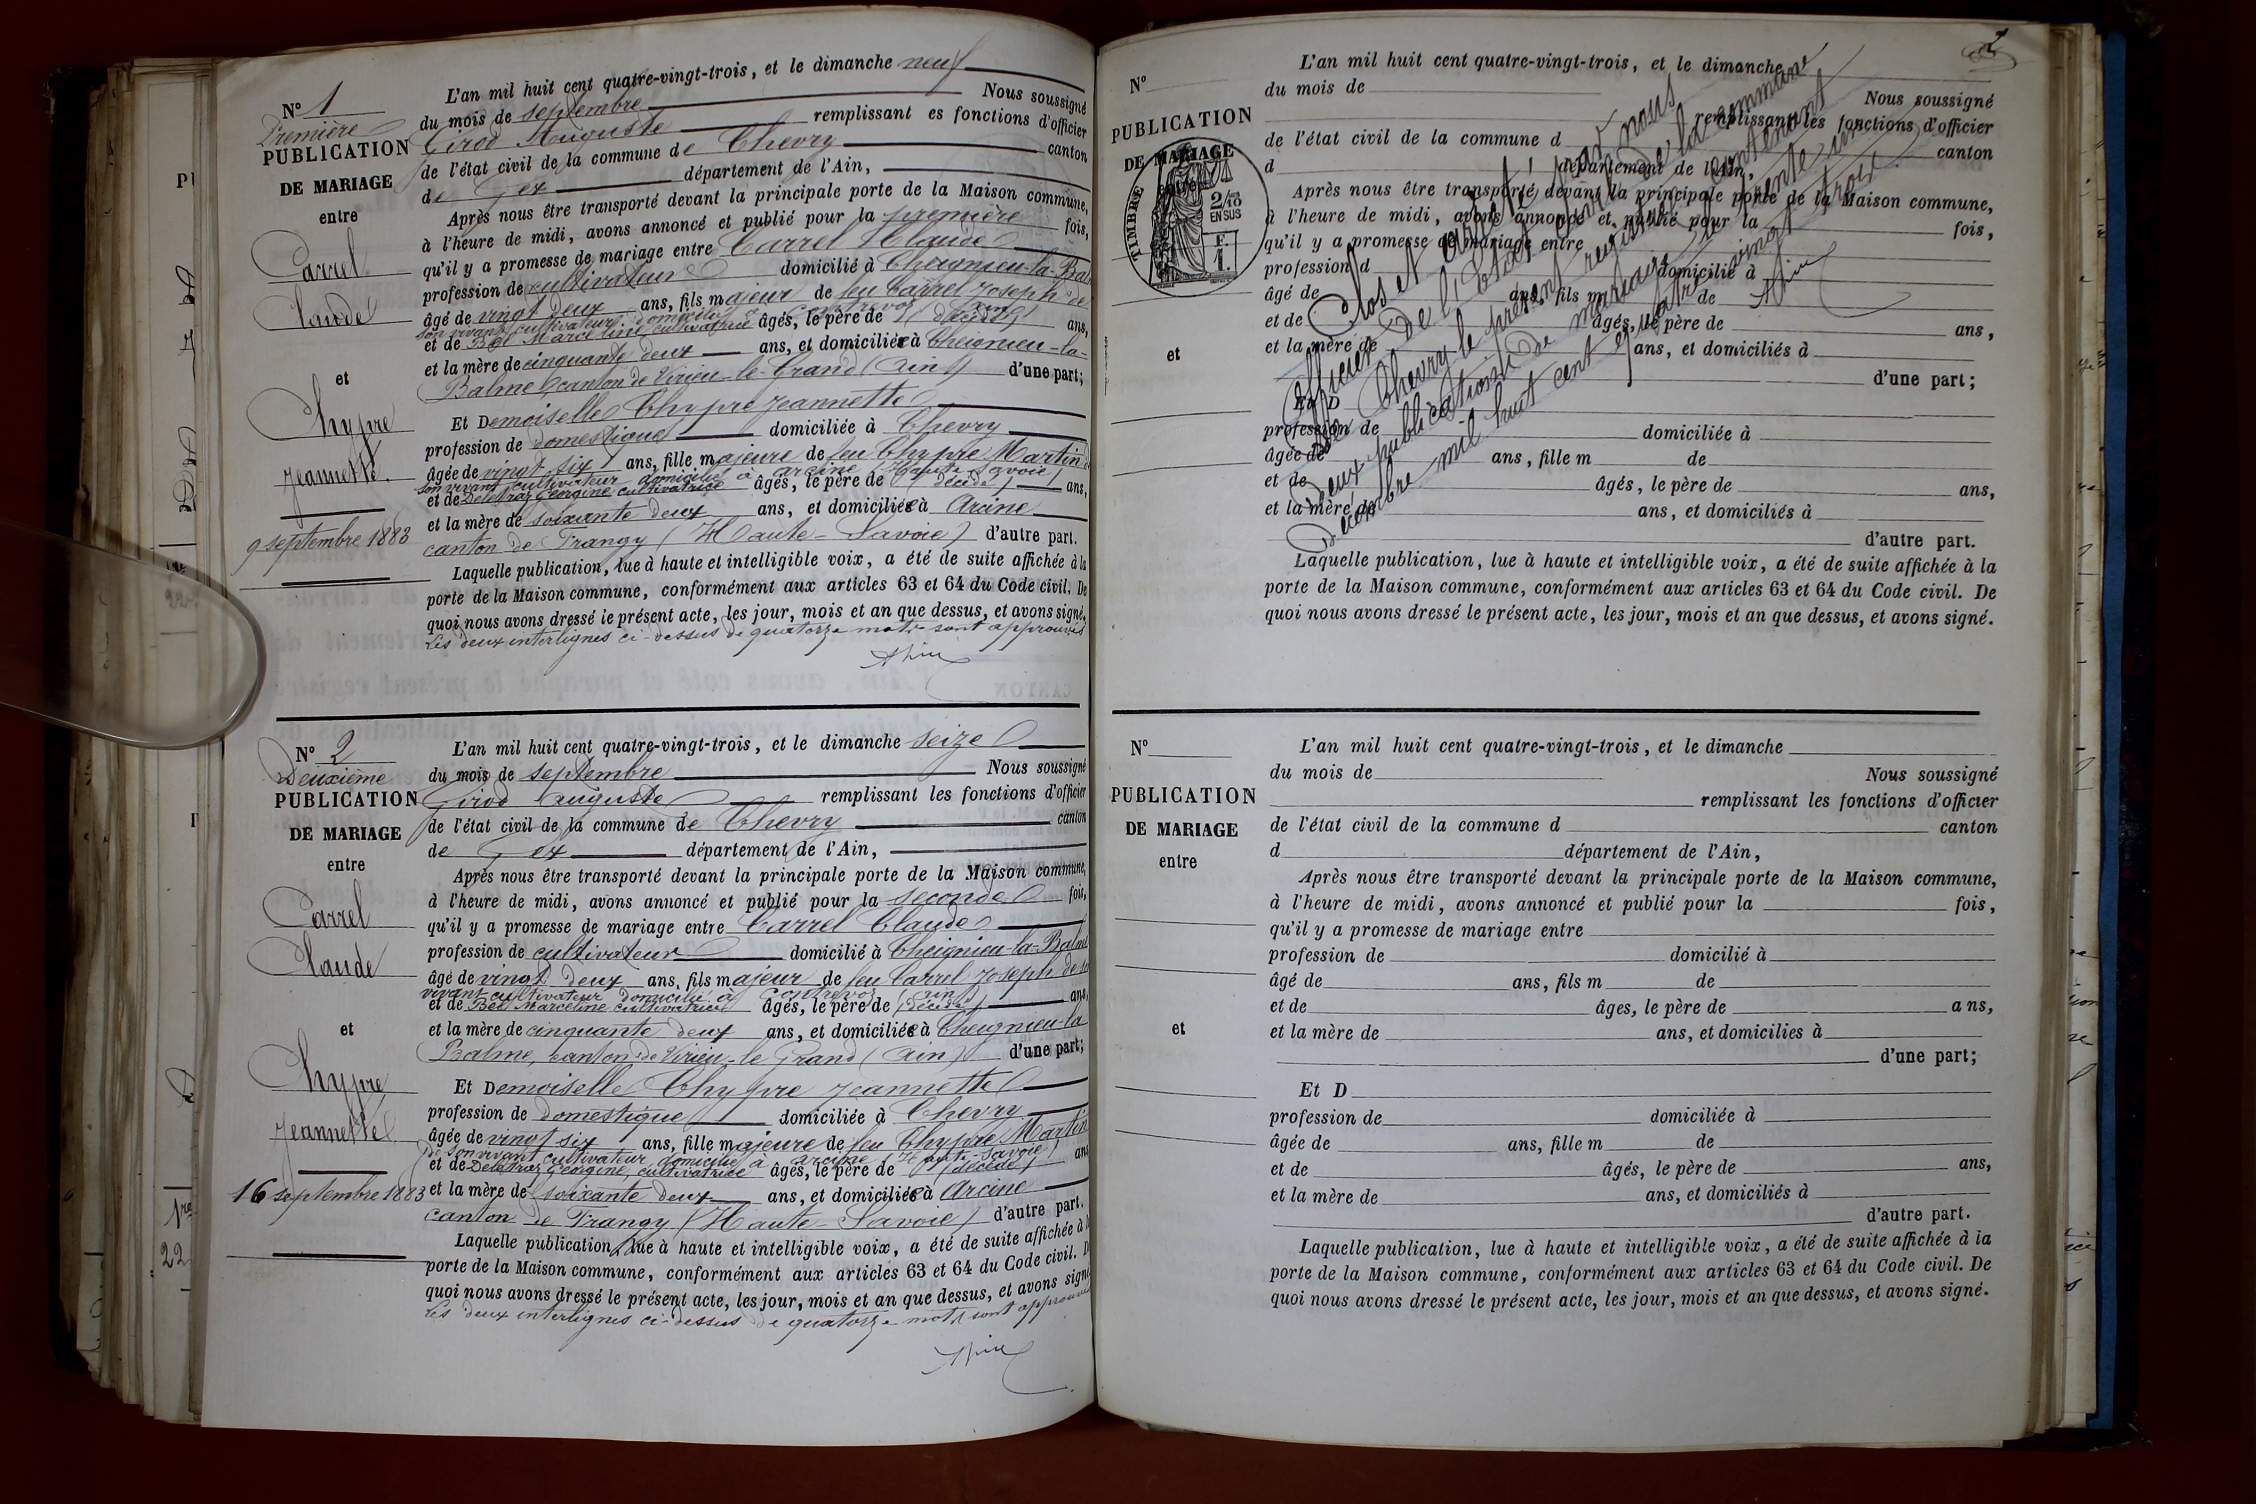 N° 1
Première
PUBLICATION
DE MARIAGE
entre
Carrel
Claude
et
Chypre
Jeannette
9 septembre 1883
L'an mil huit cent quatre-vingt-trois, et le dimanche neuf
du mois de septembre Nous soussigné
Girod Auguste remplissant es fonctions d'officier
de l'état civil de la commune de Chevry canton
de Gex département de l'Ain,
Après nous être transporté devant la principale porte de la Maison commune,
à l'heure de midi, avons annoncé et publié pour la première fois,
qu'il y a promesse de mariage entre Carrel Claude
profession de cultivateur domicilié à Cheignieu-la-Balme
âgé de vingt deux ans, fils majeur de feu Carrel Joseph de
son vivant cultivateur domicilié à (Ain)
et de Bel Marceline cultivatrice âgés, le père de (décédé) ans,
et la mère de cinquante deux ans, et domiciliée à Cheignieu-la-
Balme, canton de Virieu-le-Grand (Ain) d'une part;
Et Demoiselle Chypre Jeannette
profession de domestique domiciliée à Chevry
âgée de vingt six ans, fille majeure de feu Chypre Martin de
son vivant cultivateur domicilié à Arcine (Haute-Savoie)
et de Delétraz Géorgine cultivatrice âgés, le père de (décédé) ans,
et la mère de soixante deux ans, et domiciliée à Arcine
canton de Frangy (Haute-Savoie) d'autre part.
Laquelle publication, lue à haute et intelligible voix, a été de suite affichée à la
porte de la Maison commune, conformément aux articles 63 et 64 du Code civil. De
quoi nous avons dressé le présent acte, les jour, mois et an que dessus, et avons signé.
Les deux interlignes ci-dessus de quatorze mots sont approuvés
N° 2
Deuxième
PUBLICATION
DE MARIAGE
entre
Carrel
Claude
et
Chypre
Jeannette
16 septembre 1883
L'an mil huit cent quatre-vingt-trois, et le dimanche seize
du mois de septembre Nous soussigné
Girod Auguste remplissant les fonctions d'officier
de l'état civil de la commune de Chevry canton
de Gex département de l'Ain,
Après nous être transporté devant la principale porte de la Maison commune,
à l'heure de midi, avons annoncé et publié pour la seconde fois,
qu'il y a promesse de mariage entre Carrel Claude
profession de cultivateur domicilié à Cheignieu-la-Balme
âgé de vingt deux ans, fils majeur de feu Carrel Joseph de son
vivant cultivateur domicilié à (Ain)
et de Bel Marceline cultivatrice âgés, le père de (décédé) ans,
et la mère de cinquante deux ans, et domiciliée à Cheignieu-la
Balme, canton de Virieu-le-Grand (Ain) d'une part;
Et Demoiselle Chypre Jeannette
profession de domestique domiciliée à Chevry
âgée de vingt six ans, fille majeure de feu Chypre Martin
de son vivant cultivateur domicilié à Arcine (Haute-Savoie)
et de Delétraz Géorgine, cultivatrice âgés, le père de (décédé) ans
et la mère de soixante deux ans, et domiciliée à Arcine
canton de Frangy (Haute-Savoie) d'autre part.
Laquelle publication, lue à haute et intelligible voix, a été de suite affichée à la
porte de la Maison commune, conformément aux articles 63 et 64 du Code civil. De
quoi nous avons dressé le présent acte, les jour, mois et an que dessus, et avons signé
Les deux interlignes ci-dessus de quatorze mots sont approuvés
2
N°
PUBLICATION
DE MARIAGE
entre
TIMBRE
2/10
EN SUS
F.
1.
et
L'an mil huit cent quatre-vingt-trois, et le dimanche
du mois de Nous soussigné
remplissant les fonctions d'officier
de l'état civil de la commune d canton
d département de l'Ain,
Après nous être transporté devant la principale porte de la Maison commune,
à l'heure de midi, avons annoncé et publié pour la fois,
qu'il y a promesse de mariage entre
profession d domicilié à
âgé de ans, fils m de
et de âgés, le père de ans,
et la mère de ans, et domiciliés à
d'une part;
Et D
profession de domiciliée à
âgée de ans, fille m de
et de âgés, le père de ans,
et la mère de ans, et domiciliés à
d'autre part.
Laquelle publication, lue à haute et intelligible voix, a été de suite affichée à la
porte de la Maison commune, conformément aux articles 63 et 64 du Code civil. De
quoi nous avons dressé le présent acte, les jour, mois et an que dessus, et avons signé.
Clos et arrêté par nous
officier de l'Etat civil de la commune
de Chevry le présent registre contenant
deux publications de mariage le trente un
Décembre mil huit cent quatre vingt trois.
N°
PUBLICATION
DE MARIAGE
entre
et
L'an mil huit cent quatre-vingt-trois, et le dimanche
du mois de Nous soussigné
remplissant les fonctions d'officier
de l'état civil de la commune d canton
d département de l'Ain,
Après nous être transporté devant la principale porte de la Maison commune,
à l'heure de midi, avons annoncé et publié pour la fois,
qu'il y a promesse de mariage entre
profession de domicilié à
âgé de ans, fils m de
et de âges, le père de ans,
et la mère de ans, et domicilies à
d'une part;
Et D
profession de domiciliée à
âgée de ans, fille m de
et de âgés, le père de ans,
et la mère de ans, et domiciliés à
d'autre part.
Laquelle publication, lue à haute et intelligible voix, a été de suite affichée à la
porte de la Maison commune, conformément aux articles 63 et 64 du Code civil. De
quoi nous avons dressé le présent acte, les jour, mois et an que dessus, et avons signé.